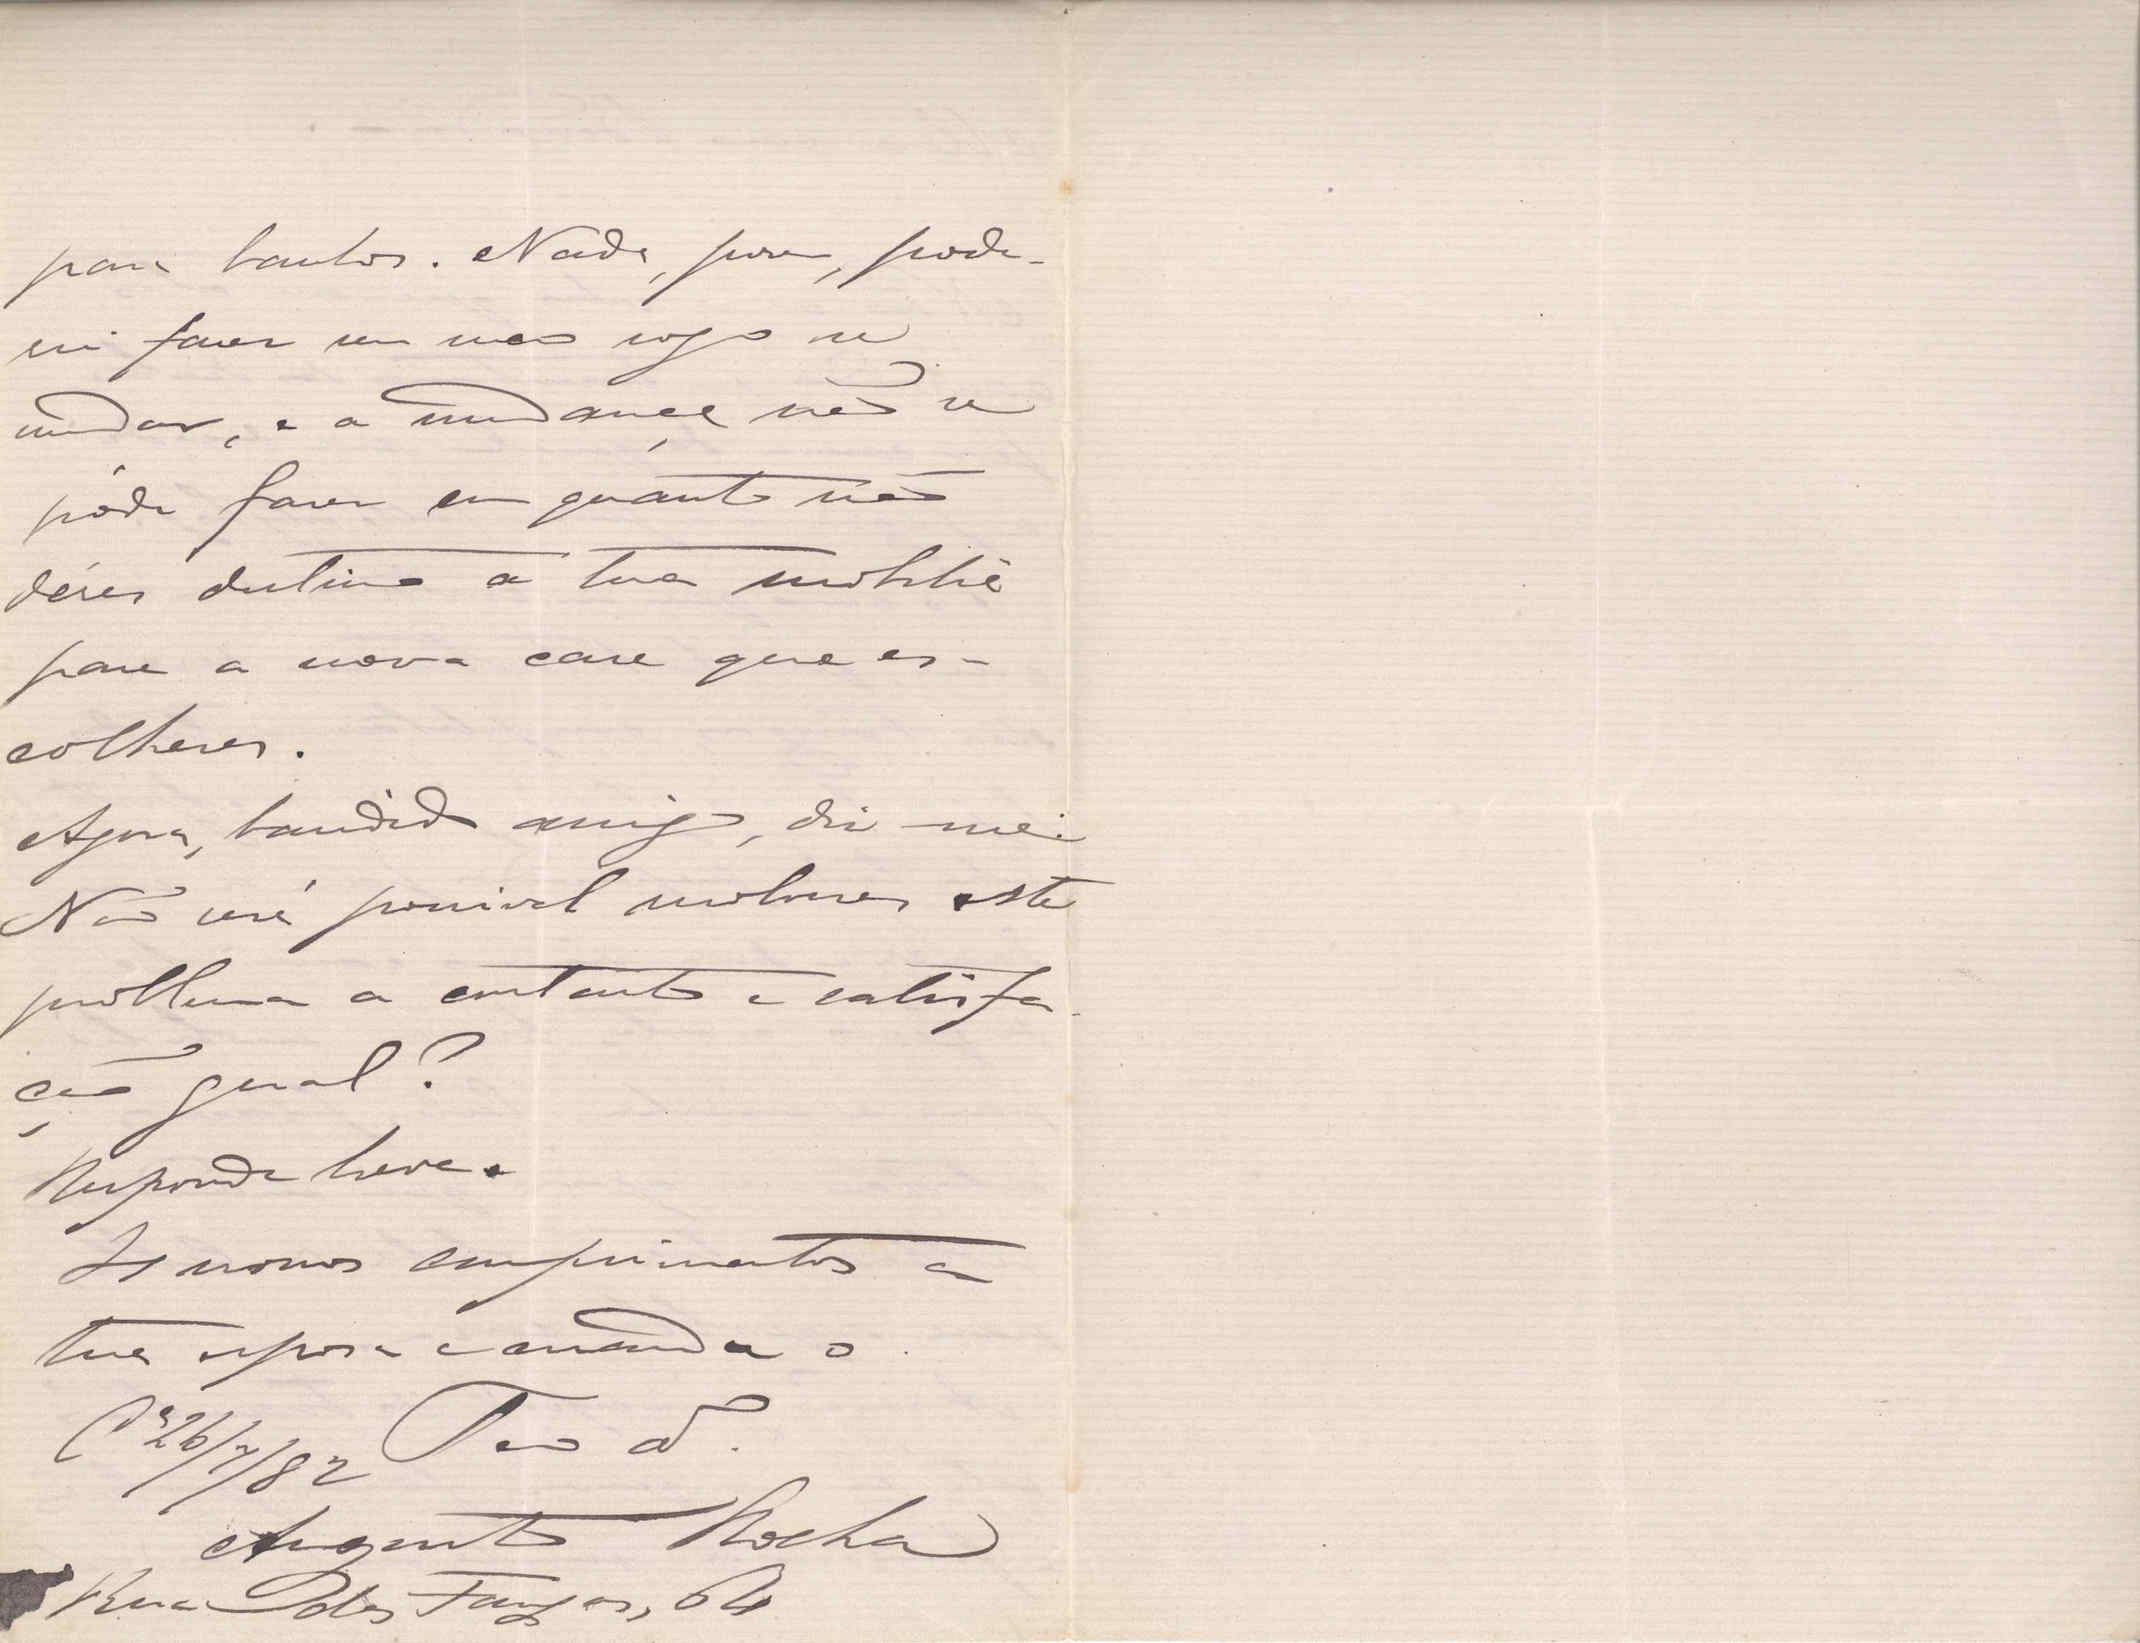 para tantos. Nada, porem, pode-
rei fazer se meu sogro se
mudar, e a mudança não se
póde fazer em quanto não
déres destino á tua mobilia
para a nova casa que es-
colheres.
Agora, bandido amigo, diz-me:
Não será possivel resolver este
problema a contento e satisfa-
ção geral?
Responde breve.
Os nossos cumprimentos á
tua esposa e manda o
Cª 26/7/82 Teu
Augusto Rocha
Rua das Fangas, 64